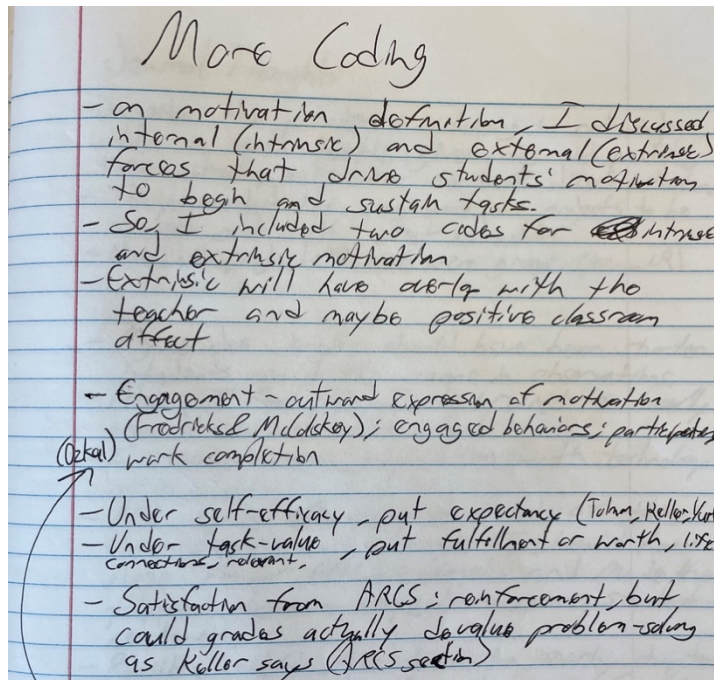 More Coding
- on motivation definition, I discussed
internal (intrinsic) and external (extrinsic)
forces that drive students' motivation
to begin and sustain tasks.
- So, I included two codes for intrinsic
and extrinsic motivation
- Extrinsic will have overlap with the
teacher and maybe positive classroom
affect
- Engagement - outward expression of motivation
(Fredricks & McColskey); engaged behaviors; participates,
(Ozkal) work completion
- Under self-efficacy, put expectancy (Tolman, Keller,
- Under task-value, put fulfillment or worth, life
connections, relevant,
- Satisfaction from ARCS; reinforcement, but
could grades actually devalue problem-solving
as Keller says (ARCS section)